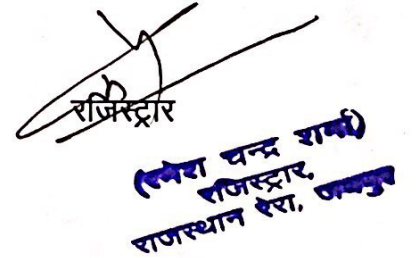 रजिस्ट्रार
(रमेश चन्द्र शर्मा)
रजिस्ट्रार,
राजस्थान रेरा, जयपुर